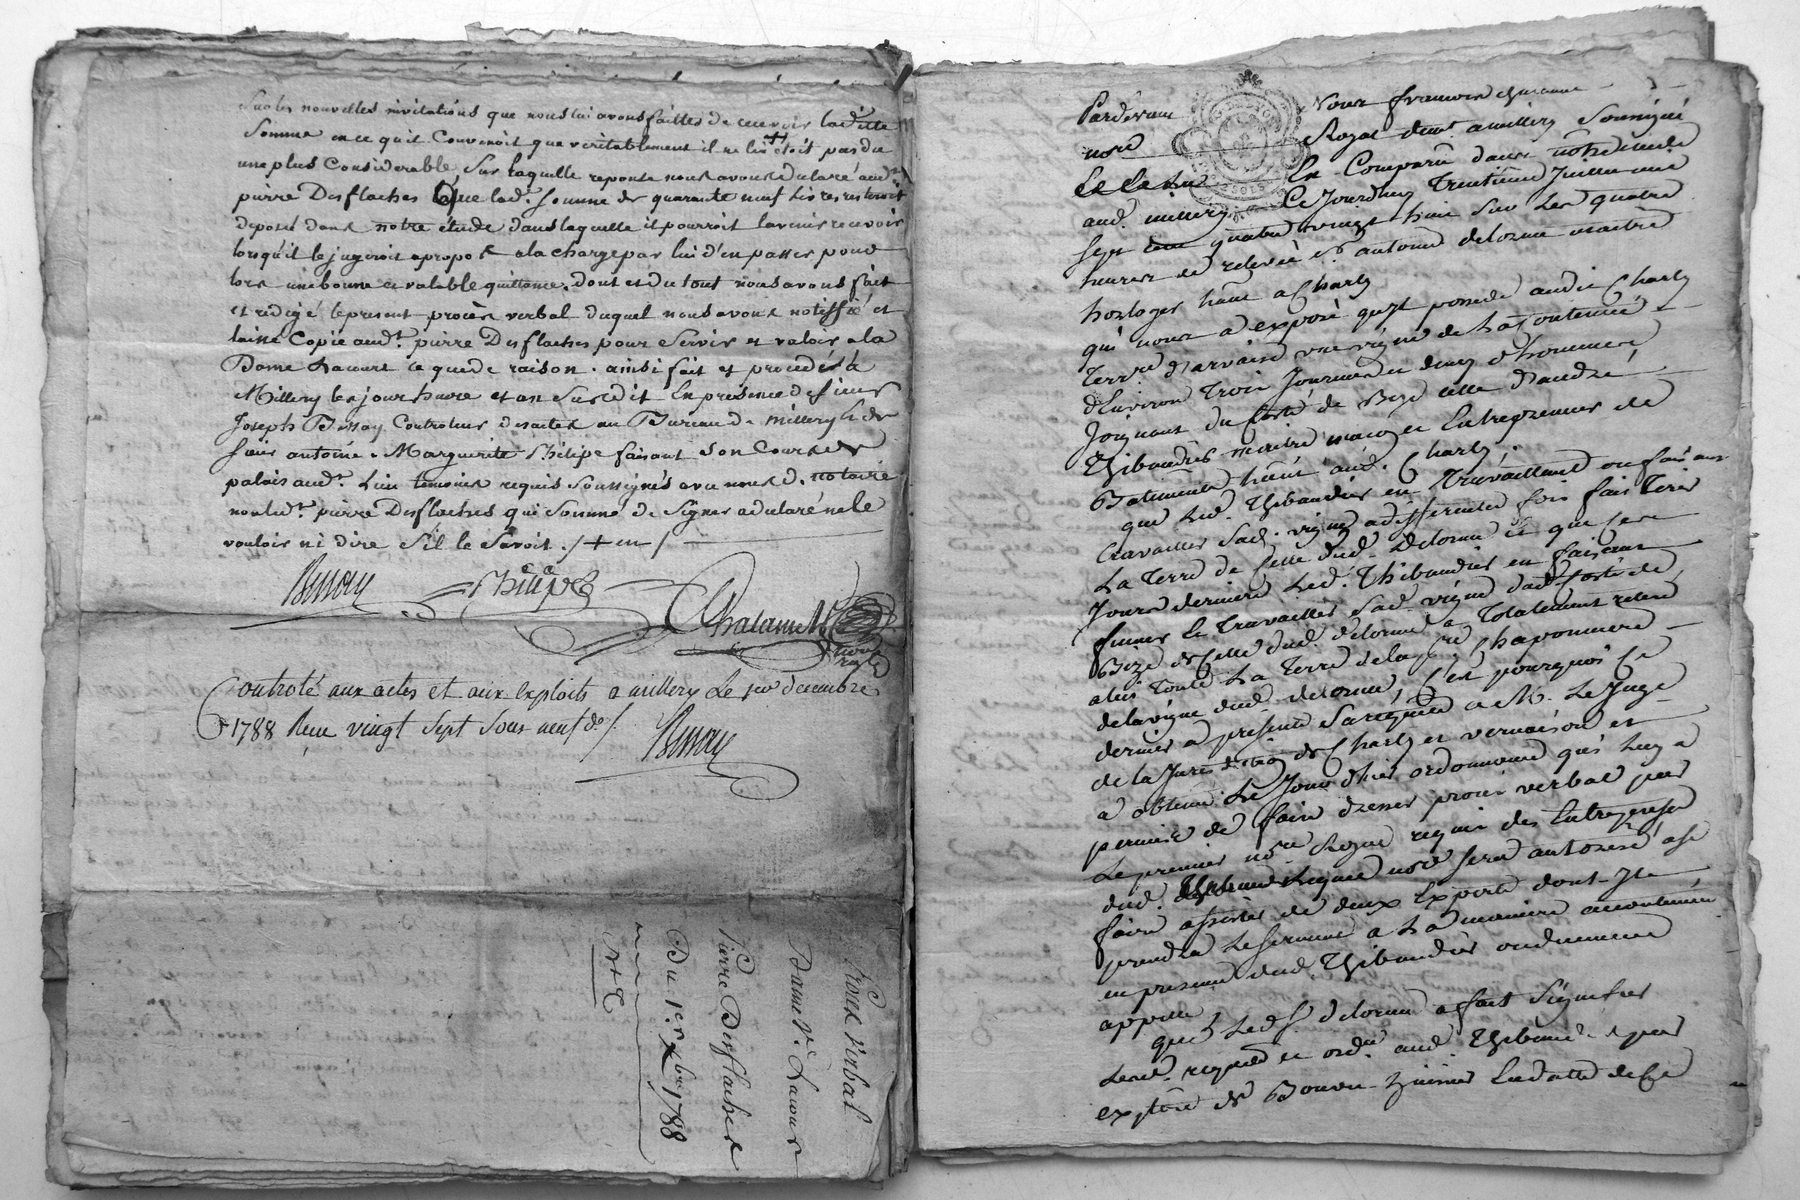 Sur les nouvelles invitations que nous lui avons faittes de recevoir laditte
Somme en ce qu'il convenoit que véritablement il ne lui + étoit pas due
une plus Considerable Sur laquelle reponse nous avons déclaré aud.t
pierre Desflaches Que lad. Somme de quarante neuf Livres resteroit
deposée dans notre étude dans laquelle il pourroit la venir recevoir
lorsqu'il le jugeroit apropos a la charge par lui d'en passer pour
lors une bonne et valable quittance. dont et du tout nous avons fait
et rédigé le present procès verbal duquel nous avons notiffié et
laissé Copie aud.t pierre Desflaches pour Servir et valoir a la
Dame Lacour ce que de raison. ainsi fait et procedé a
Millery les jour heure et an Susdit En présence de sieur
Joseph Controleur des actes au Bureau de Millery & de
sieur antoine Marguerite Philipe faisant Son Cours de
palais aud.t Lieu temoins requis Soussignés avec nous d. notaire
non led.t pierre Desflaches qui Sommé de Signer a déclaré ne le
vouloir ni dire S'il le Savoit. / + en /
Philipe
Chalamel
not.
royal
Controlé aux actes et aux exploits a millery Le 1er decembre
1788 Reçu vingt Sept Sous neuf d. /
Procès Verbal
Dame Ve. Lacour
Pierre Desflaches
Du 1.er Xbre 1788
Pardevant Nous francois
nore Royal a millery Soussigné
En Comparu dans nôtre étude
aud. millery Ce Jourdhuy Trentieme Juin mil
sept cent quatre vingt huit Sur Les quatre
heures de relevée Sr. antoine delorme maitre
horloger ha.nt a Charly
qui nous a exposé qu'il possede audit Charly
Terre. D'arvaise une vigne de La Contenue
d'Environ Trois Journées et demy d'hommes
Joignant du Costé de Bize celle D'andré
Thibaudier maitre maçon et Entrepreneur de
Batiments ha.nt aud. Charly.
que Led. Thibaudier en Travaillant ou faisant
Travailler Sad. vigne a differentes fois fait Tirer
La Terre de Celle dud. Delorme et que Ces
Jours derniers Led. Thibaudier en faisant
Le Travailler Sad. vigne dud. Costé de
Bize de Celle dud. delorme a Totalement
Toute La Terre de la Chaponniere
de la vigne dud. delorme, C'est pourquoi Ce
dernier a présenté Sa requête a M. Le Juge
de la Jurisdiction de Charly et vernaison et
a obtenu Le Jour d'hier ordonnance qui Luy a
permis de faire dresser procès verbal par
Le premier nore Royal requis des Entreprises
dud. Thibaudier Lequel nore Sera autorisé a Se
faire assister de deux Experts dont Il
prendra Le Serment a La maniere accoutumée
en presence dud. Thibaudier ou duement
appellé,
que Led S. delorme a fait Signiffier
Lesd. requete et ord.ce aud. Thibaudier par
exploit de Bonou huissier En datte de Ce